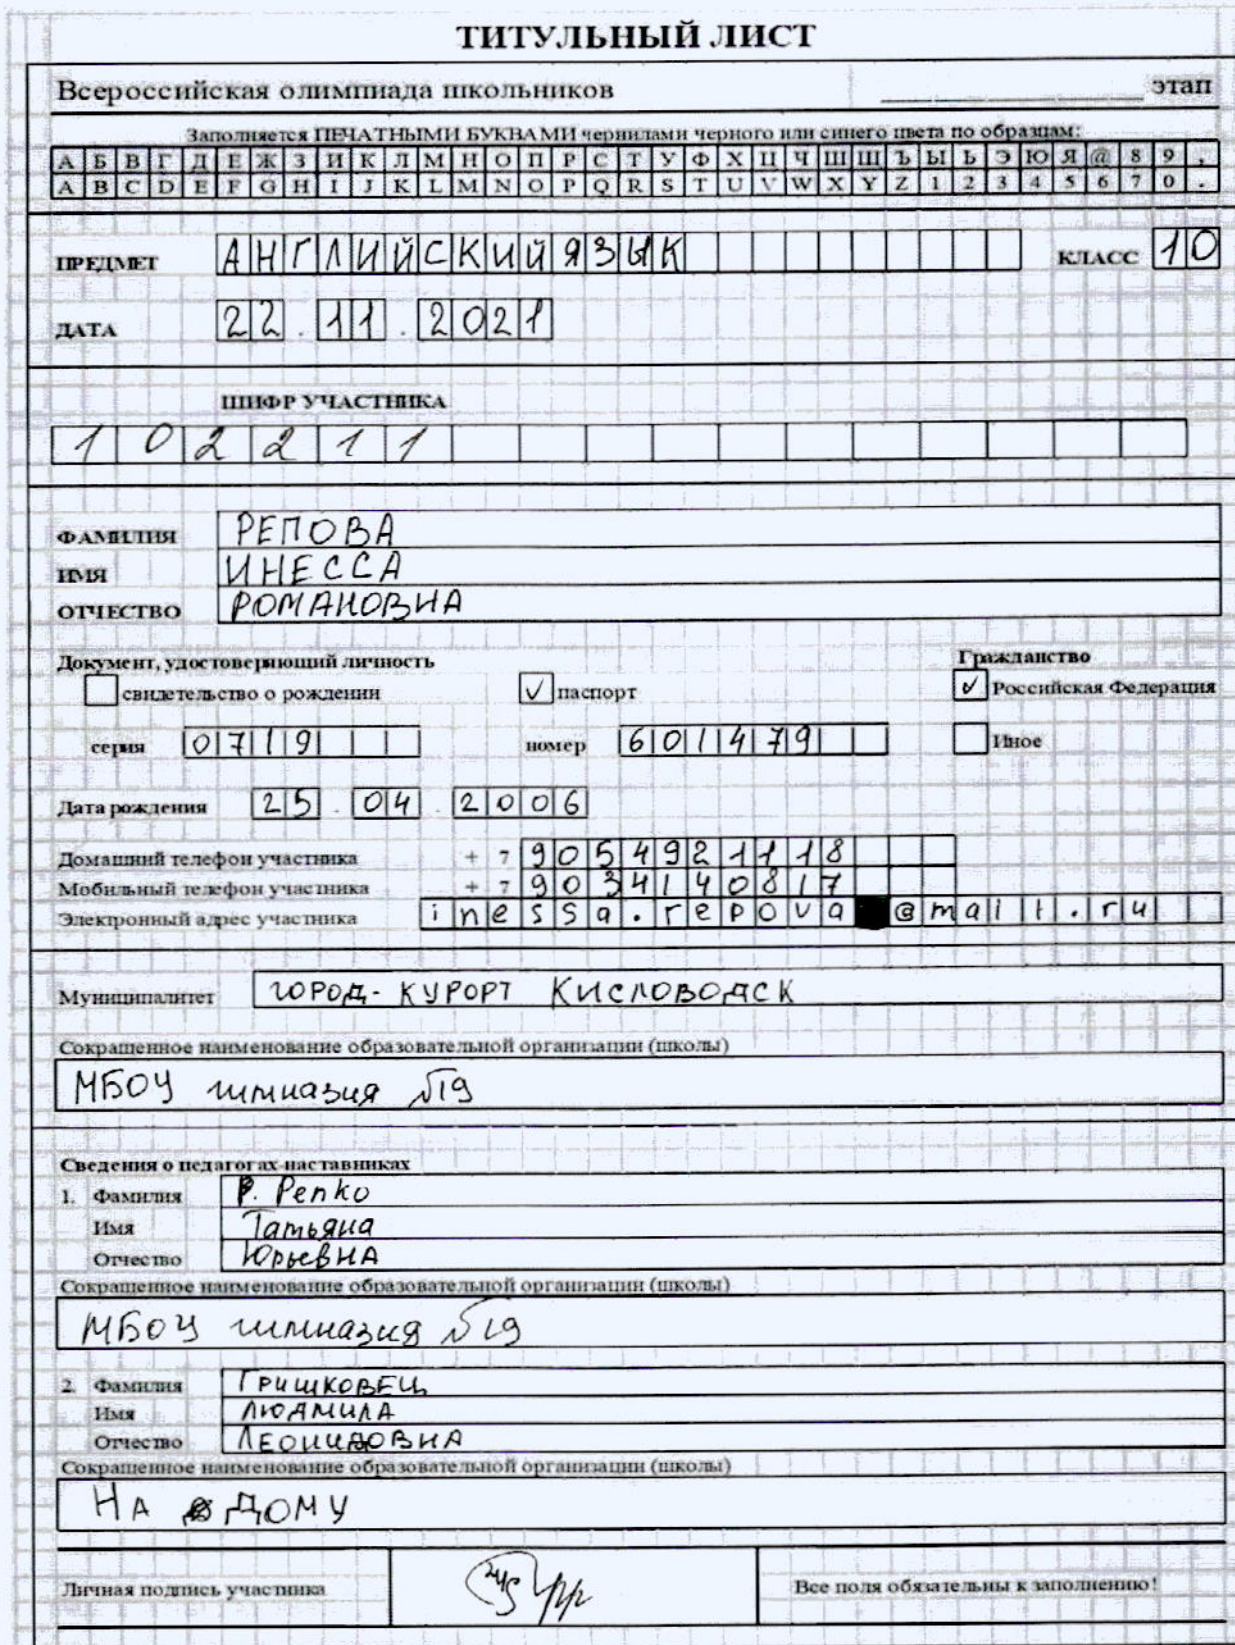 ТИТУЛЬНЫЙ ЛИСТ
Всероссийская олимпиада школьников ____________ этап
Заполняется ПЕЧАТНЫМИ БУКВАМИ чернилами черного или синего цвета по образцам:
А Б В Г Д Е Ж З И К Л М Н О П Р С Т У Ф Х Ц Ч Ш Щ Ъ Ы Ь Э Ю Я @ 8 9 ,
A B C D E F G H I J K L M N O P Q R S T U V W X Y Z 1 2 3 4 5 6 7 0 .
ПРЕДМЕТ АНГЛИЙСКИЙ ЯЗЫК КЛАСС 10
ДАТА 22.11.2021
ШИФР УЧАСТНИКА
102211
ФАМИЛИЯ РЕПОВА
ИМЯ ИНЕССА
ОТЧЕСТВО РОМАНОВНА
Документ, удостоверяющий личность Гражданство
свидетельство о рождении ✓ паспорт ✓ Российская Федерация
серия 0719 номер 601479 Иное
Дата рождения 25.04.2006
Домашний телефон участника +7 9054921118
Мобильный телефон участника +7 9034140817
Электронный адрес участника inessa.repova@mail.ru
Муниципалитет ГОРОД-КУРОРТ КИСЛОВОДСК
Сокращенное наименование образовательной организации (школы)
МБОУ гимназия №19
Сведения о педагогах-наставниках
1. Фамилия Р. Репко
Имя Татьяна
Отчество Юрьевна
Сокращенное наименование образовательной организации (школы)
МБОУ гимназия №19
2. Фамилия ГРИШКОВЕЦ
Имя ЛЮДМИЛА
Отчество ЛЕОНИДОВНА
Сокращенное наименование образовательной организации (школы)
НА ДОМУ
Личная подпись участника Все поля обязательны к заполнению!